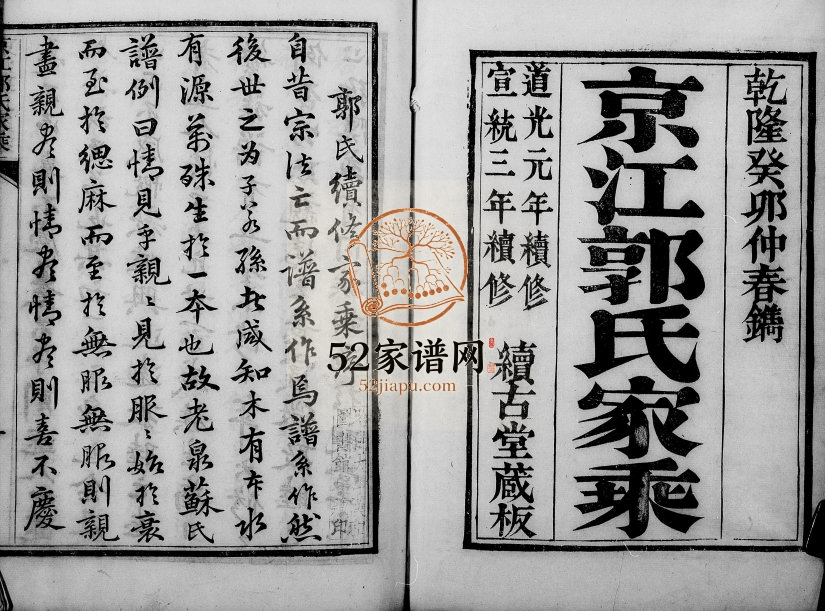 乾隆癸卯仲春鐫
京江郭氏家乘
道光元年續修
宣統三年續修
續古堂蔵板
郭氏續修家乘序
自昔宗法亡而譜系作焉譜系作然
後世之为子若孫者咸知木有本水
有源萬殊生於一本也故老泉蘇氏
譜例曰情見乎親〻見於服〻始於衰
而至於緦麻而至於無服無服則親
盡親盡則情盡情盡則喜不慶
京江郭氏家乘
52家谱网
52jiapu.com